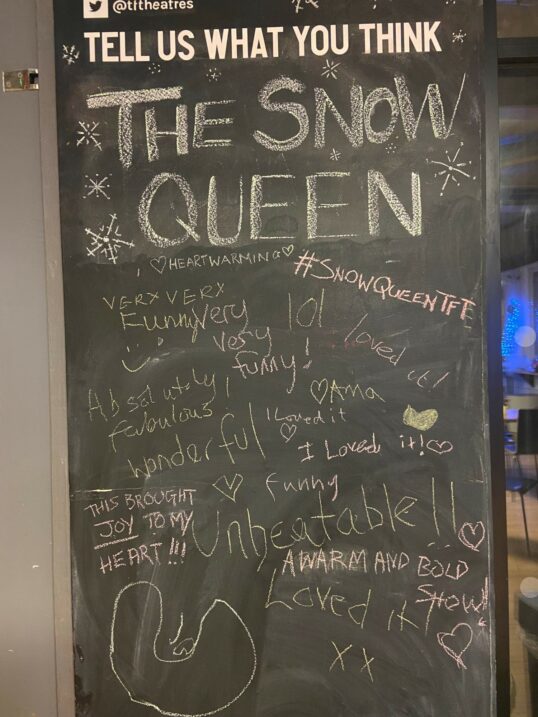 @tftheatres
TELL US WHAT YOU THINK
THE SNOW
QUEEN
HEARTWARMING
#SNOWQUEENTFT
VERY VERY
Funny
Very
very
funny!
lol
Loved it!
Absolutely
fabulous
wonderful
Ama
I Loved it
I Loved it!
funny
THIS BROUGHT
JOY TO MY
HEART!!!
Unbeatable!!
A WARM AND BOLD
SHOW!
Loved it!
XX